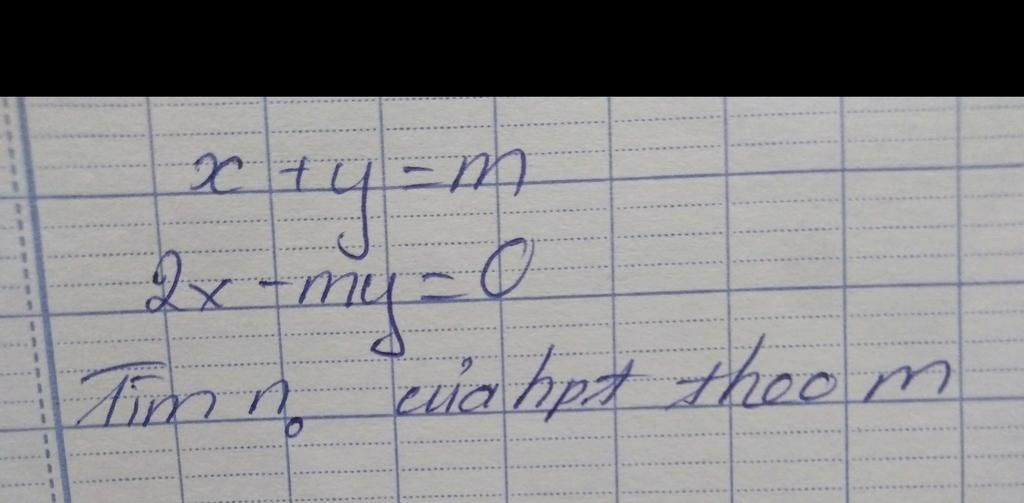 x + y = m
2x - my = 0
Tìm n₀ của hpt theo m